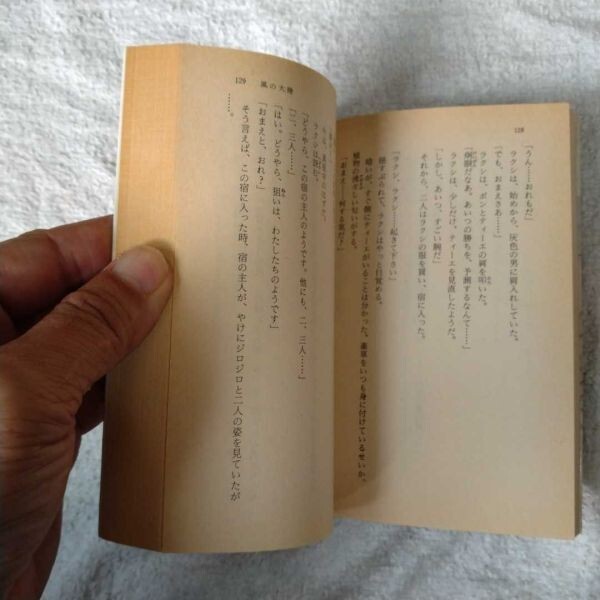 128
「うん……おれもだ」
ラクシは、始めから、灰色の男に肩入れしていた。
「でも、おまえさあ……」
ラクシは、ポンとティーエの肩を叩いた。
「仲々だなあ。あいつの勝ちを、予測するなんて……」
「しかし、あいつ、すごい腕だ」
ラクシは、少しだけ、ティーエを見直したようだ。
それから、二人はラクシの服を買い、宿に入った。
「ラクシ、ラクシ……起きて下さい」
揺すぶられて、ラクシはやっと目覚める。
暗いが、すぐ側にティーエがいることは分かった。薬草をいつも身に付けているせいか、
植物の清々しい匂いがする。
「おまえ……何する気だ？」
129 風の大陸
ラクシは訊く。
「どうやら、この宿の主人のようです。他にも、二、三人……」
「二、三人……」
「はい。どうやら、狙いは、わたしたちのようです」
「おまえと、おれ？」
そう言えば、この宿に入った時、宿の主人が、やけにジロジロと二人の姿を見ていたが
……。